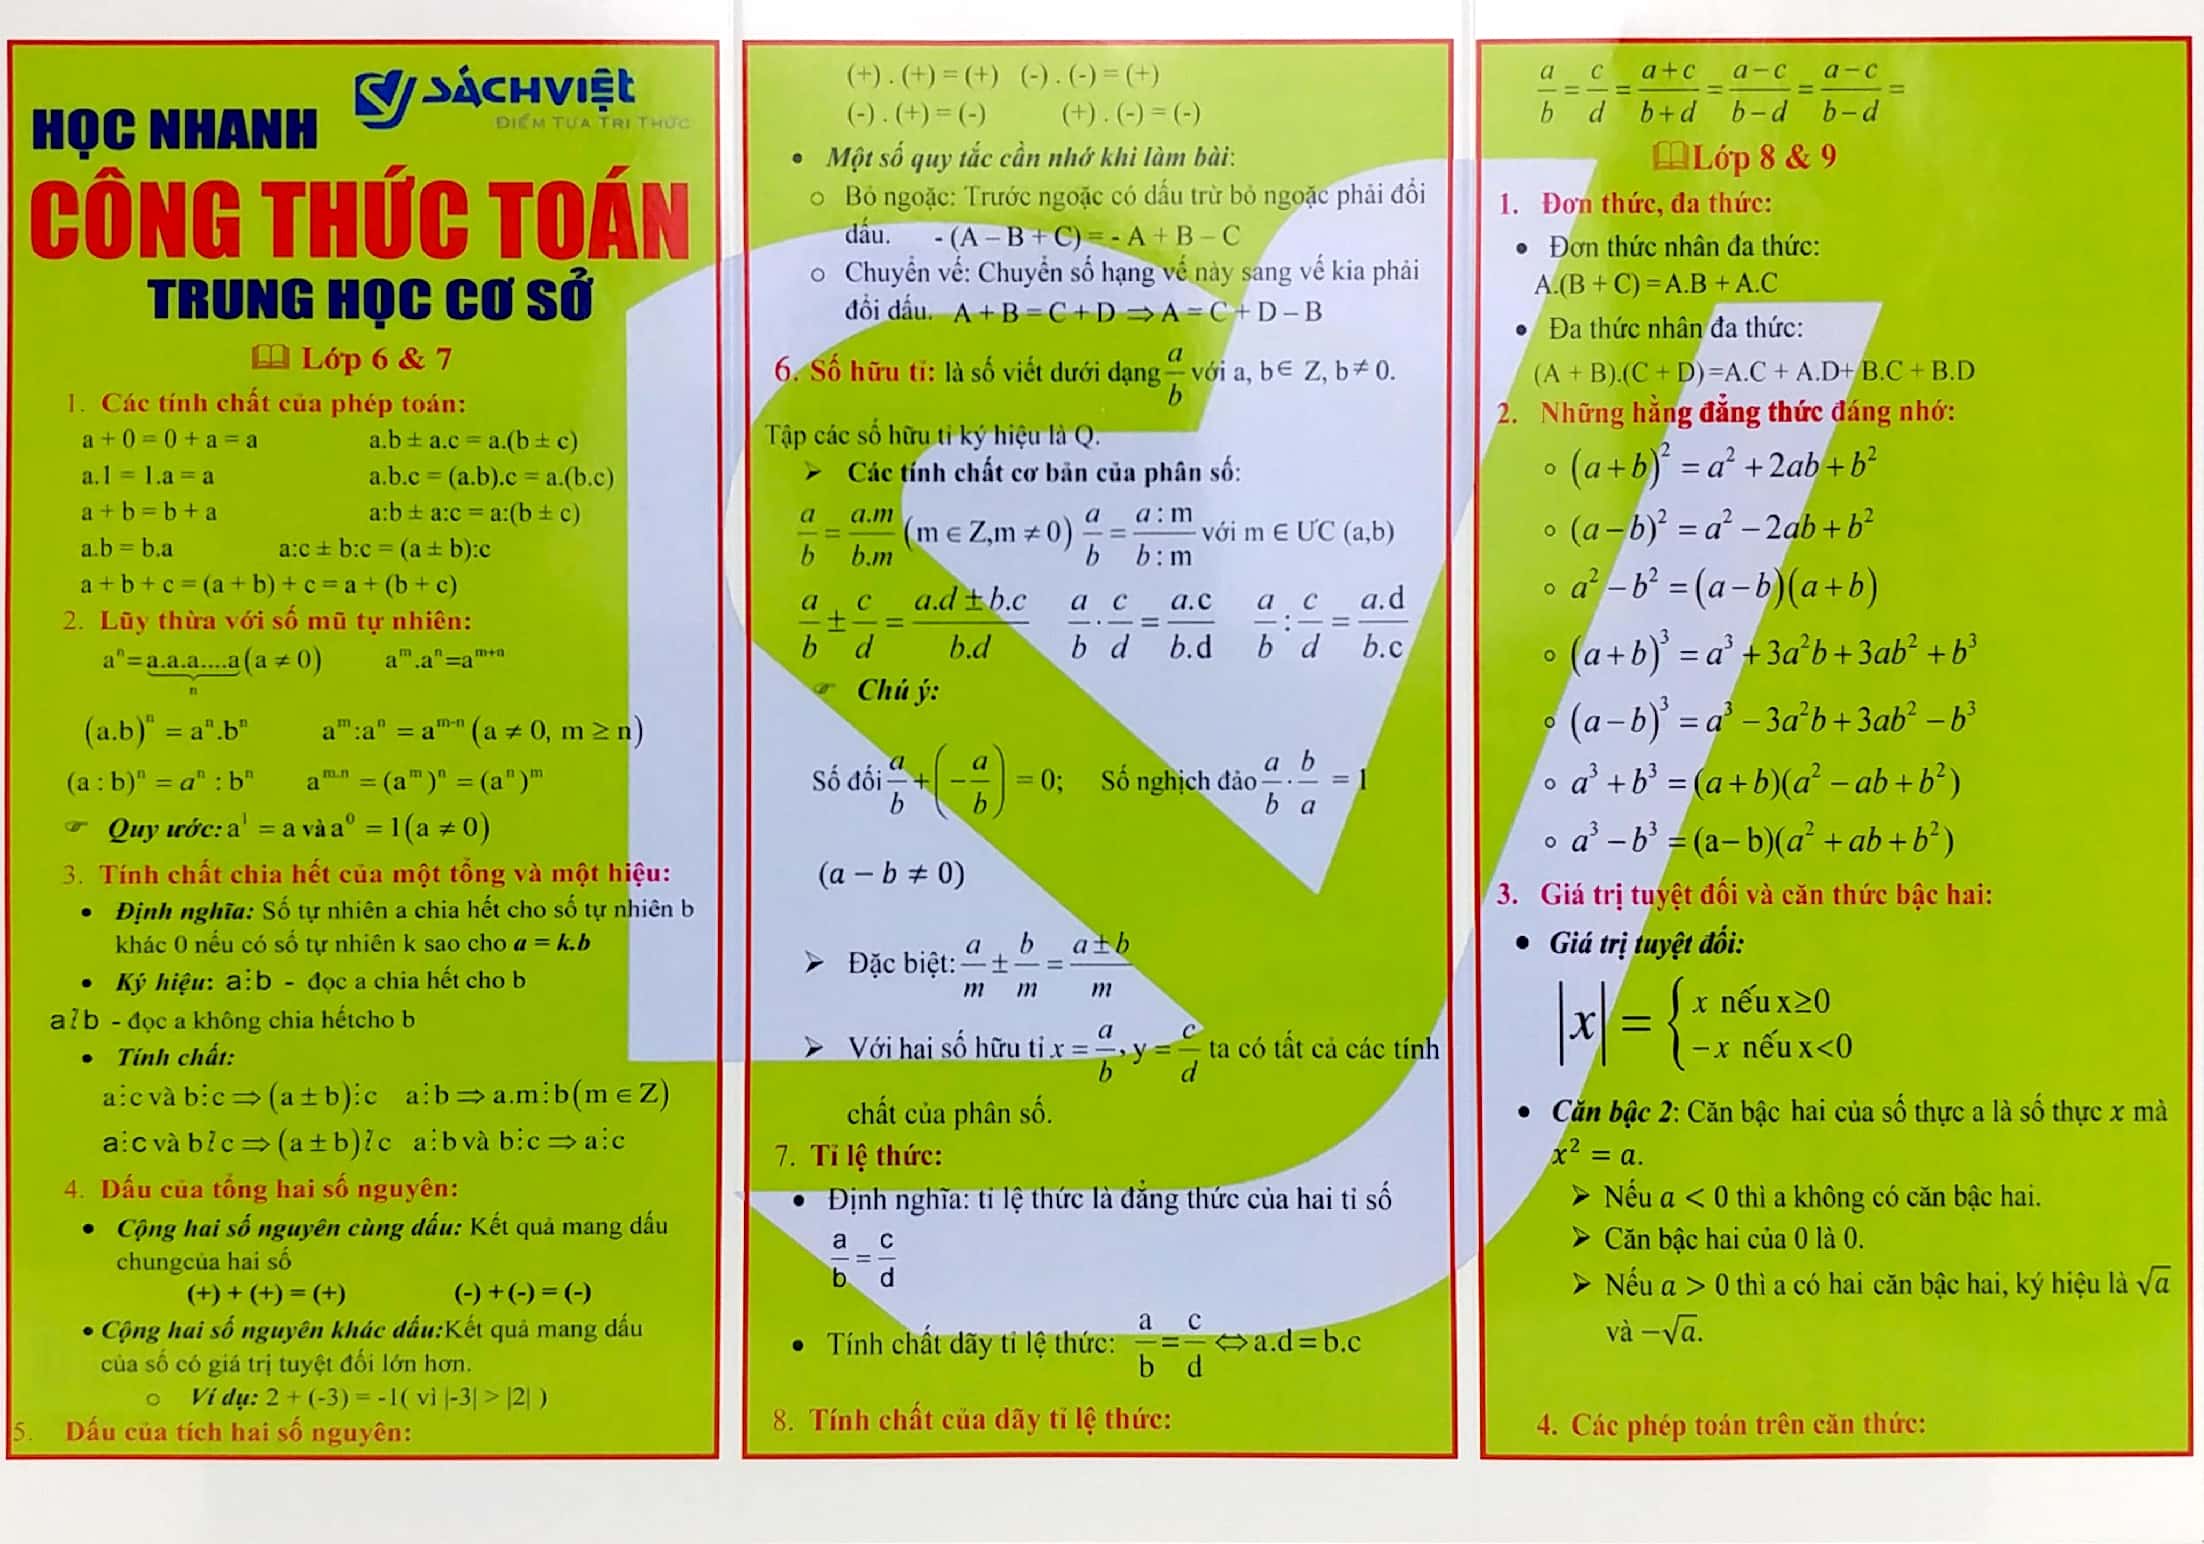 SÁCHVIỆT
ĐIỂM TỰA TRI THỨC
HỌC NHANH
CÔNG THỨC TOÁN
TRUNG HỌC CƠ SỞ
Lớp 6 & 7
1. Các tính chất của phép toán:
a + 0 = 0 + a = a a.b ± a.c = a.(b ± c)
a.1 = 1.a = a a.b.c = (a.b).c = a.(b.c)
a + b = b + a a:b ± a:c = a:(b ± c)
a.b = b.a a:c ± b:c = (a ± b):c
a + b + c = (a + b) + c = a + (b + c)
2. Lũy thừa với số mũ tự nhiên:
aⁿ = a.a.a....a (a ≠ 0) aᵐ.aⁿ=aᵐ⁺ⁿ
n
(a.b)ⁿ = aⁿ.bⁿ aᵐ:aⁿ = aᵐ⁻ⁿ (a ≠ 0, m ≥ n)
(a : b)ⁿ = aⁿ : bⁿ aᵐ·ⁿ = (aᵐ)ⁿ = (aⁿ)ᵐ
☞ Quy ước: a¹ = a và a⁰ = 1(a ≠ 0)
3. Tính chất chia hết của một tổng và một hiệu:
• Định nghĩa: Số tự nhiên a chia hết cho số tự nhiên b
khác 0 nếu có số tự nhiên k sao cho a = k.b
• Ký hiệu: a⋮b - đọc a chia hết cho b
a⌿b - đọc a không chia hếtcho b
• Tính chất:
a⋮c và b⋮c ⇒ (a ± b)⋮c a⋮b ⇒ a.m⋮b(m ∈ Z)
a⋮c và b⌿c ⇒ (a ± b)⌿c a⋮b và b⋮c ⇒ a⋮c
4. Dấu của tổng hai số nguyên:
• Cộng hai số nguyên cùng dấu: Kết quả mang dấu
chungcủa hai số
(+) + (+) = (+) (-) + (-) = (-)
• Cộng hai số nguyên khác dấu:Kết quả mang dấu
của số có giá trị tuyệt đối lớn hơn.
○ Ví dụ: 2 + (-3) = -1( vì |-3| > |2| )
5. Dấu của tích hai số nguyên:
(+) . (+) = (+) (-) . (-) = (+)
(-) . (+) = (-) (+) . (-) = (-)
• Một số quy tắc cần nhớ khi làm bài:
○ Bỏ ngoặc: Trước ngoặc có dấu trừ bỏ ngoặc phải đổi
dấu. - (A – B + C) = - A + B – C
○ Chuyển vế: Chuyển số hạng vế này sang vế kia phải
đổi dấu. A + B = C + D ⇒ A = C + D – B
6. Số hữu tỉ: là số viết dưới dạng a/b với a, b∈ Z, b ≠ 0.
Tập các số hữu tỉ ký hiệu là Q.
➢ Các tính chất cơ bản của phân số:
a/b = a.m/b.m (m ∈ Z,m ≠ 0) a/b = a : m/b : m với m ∈ ƯC (a,b)
a/b ± c/d = a.d ± b.c/b.d a/b . c/d = a.c/b.d a/b : c/d = a.d/b.c
☞ Chú ý:
Số đối a/b + (−a/b) = 0; Số nghịch đảo a/b . b/a = 1
(a − b ≠ 0)
➢ Đặc biệt: a/m ± b/m = a ± b/m
➢ Với hai số hữu tỉ x = a/b, y = c/d ta có tất cả các tính
chất của phân số.
7. Tỉ lệ thức:
• Định nghĩa: tỉ lệ thức là đẳng thức của hai tỉ số
a/b = c/d
• Tính chất dãy tỉ lệ thức: a/b = c/d ⇔ a.d = b.c
8. Tính chất của dãy tỉ lệ thức:
a/b = c/d = a+c/b+d = a−c/b−d = a−c/b−d =
Lớp 8 & 9
1. Đơn thức, đa thức:
• Đơn thức nhân đa thức:
A.(B + C) = A.B + A.C
• Đa thức nhân đa thức:
(A + B).(C + D)=A.C + A.D+ B.C + B.D
2. Những hằng đẳng thức đáng nhớ:
○ (a+b)² = a² + 2ab + b²
○ (a−b)² = a² − 2ab + b²
○ a² − b² = (a−b)(a+b)
○ (a+b)³ = a³ + 3a²b + 3ab² + b³
○ (a−b)³ = a³ − 3a²b + 3ab² − b³
○ a³ + b³ = (a+b)(a² − ab + b²)
○ a³ − b³ = (a−b)(a² + ab + b²)
3. Giá trị tuyệt đối và căn thức bậc hai:
• Giá trị tuyệt đối:
|x| = { x nếu x≥0
−x nếu x<0
• Căn bậc 2: Căn bậc hai của số thực a là số thực x mà
x² = a.
➢ Nếu a < 0 thì a không có căn bậc hai.
➢ Căn bậc hai của 0 là 0.
➢ Nếu a > 0 thì a có hai căn bậc hai, ký hiệu là √a
và −√a.
4. Các phép toán trên căn thức: